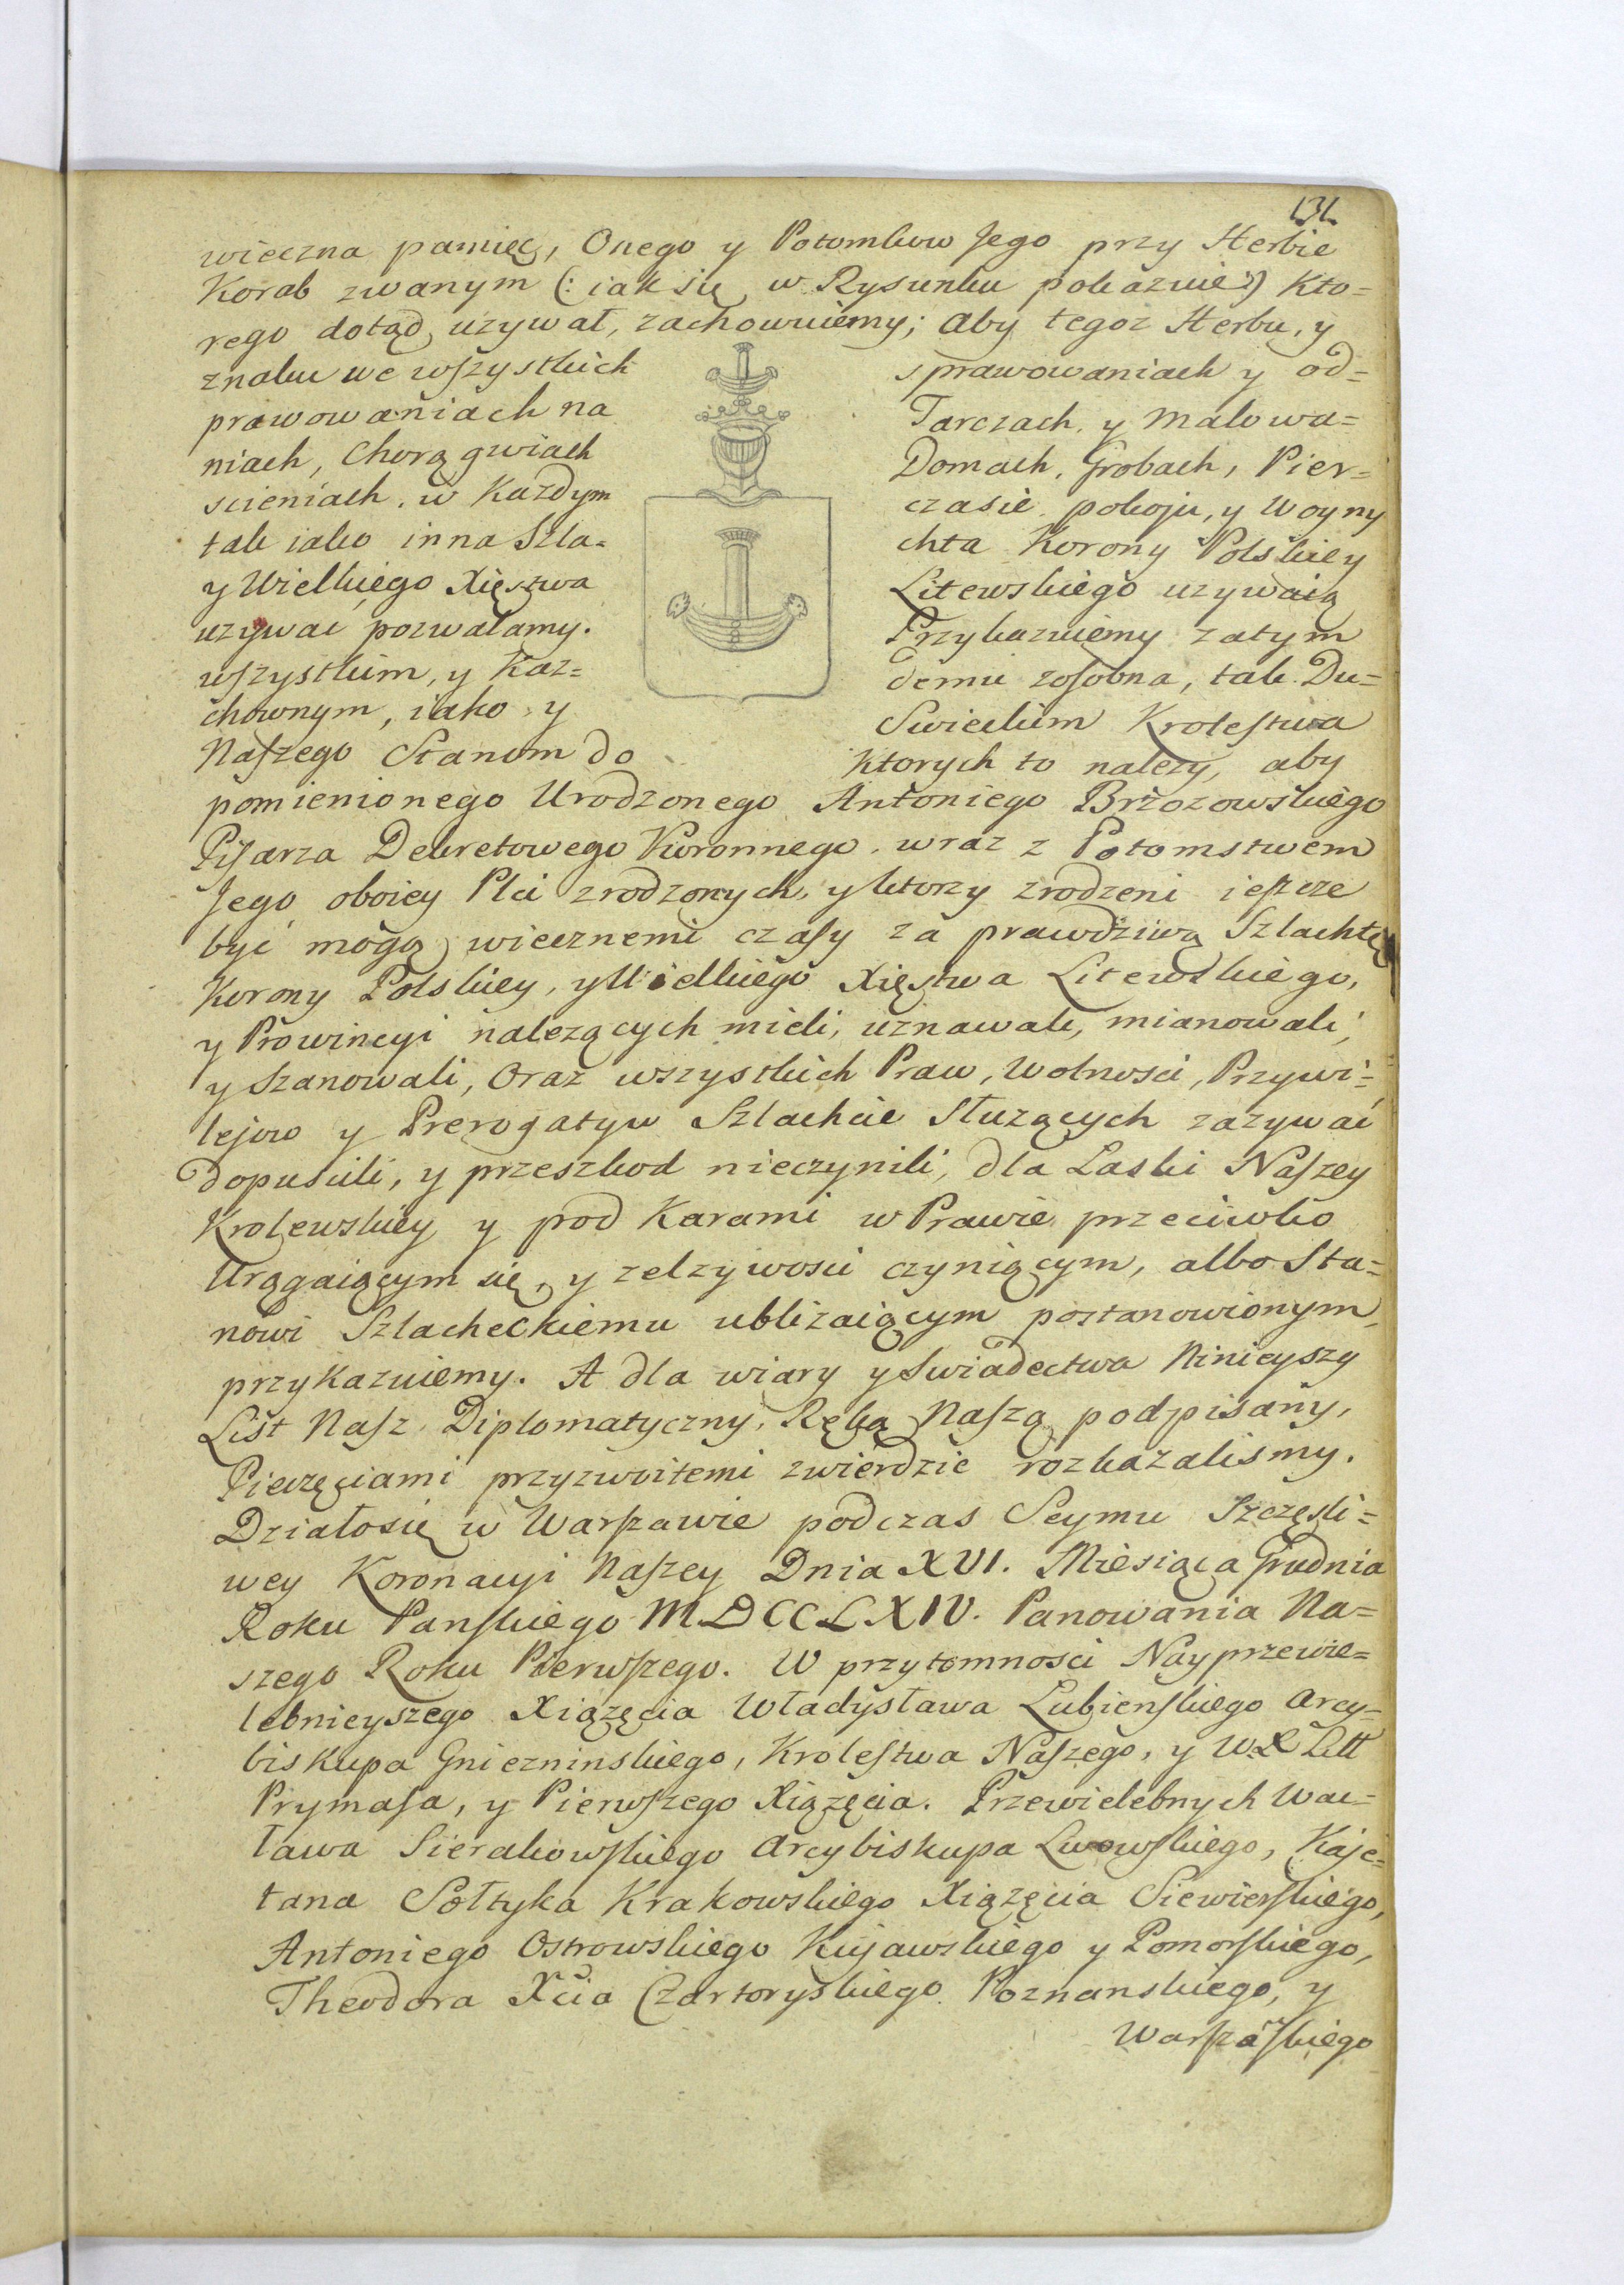 131.
wieczna pamięć, Onego y Potomkow Jego przy Herbie
Korab zwanym (: iak się w Rysunku pokazuie :) Kto=
rego dotąd uzywał, zachowuiemy; aby tegoz Herbu, y
znaku we wszystkich sprawowaniach y od=
prawowaniach na Tarczach, y malowa=
niach, Chorągwiach Domach, Grobach, Pier=
scieniach, w Kazdym czasie pokoju, y Woyny
tak iako inna Szla= chta Korony Polskiey
y Wielkiego Xięstwa Litewskiego uzywaią
uzywać pozwalamy. Przykazuiemy zatym
wszystkim, y Kaz= demu zosobna, tak Du=
chownym, iako y Swieckim Krolestwa
Naszego Stanom do Ktorych to nalezy, aby
pomienionego Urodzonego Antoniego Brzozowskiego
Pisarza Dekretowego Koronnego, wraz z Potomstwem
Jego oboiey Płci zrodzonych, y ktorzy zrodzeni ieszcze
być mogą wiecznemi czasy za prawdziwą Szlachtę
Korony Polskiey, y Wielkiego Xięstwa Litewskiego,
y Prowincyi nalezących mieli, uznawali, mianowali,
y Szanowali, Oraz wszystkich Praw, Wolnosci, Przywi=
lejow y Prerogatyw Szlachcie Słuzących zazywać
dopuscili, y przeszkod nieczynili, dla Laski Naszey
Krolewskiey y pod Karami w Prawie przeciwko
Urągaiącym się, y zelzywosci czyniącym, albo Sta=
nowi Szlacheckiemu ublizaiącym postanowionym,
przykazuiemy. A dla wiary y Swiadectwa Ninieyszy
List Nasz Diplomatyczny, Ręką Naszą podpisany,
Pieczęciami przyzwoitemi zwierdzic rozkazalismy.
Działosię w Warszawie podczas Seymu Szczęsli=
wey Koronacyi Naszey Dnia XVI. Miesiąca Grudnia
Roku Panskiego MDCCLXIV. Panowania Na=
szego Roku Pierwszego. W przytomnosci Nayprzewie=
lebnieyszego Xiązęcia Władysława Lubienskiego Arcy=
biskupa Gnieznienskiego, Krolestwa Naszego, y W.X Litt
Prymasa, y Pierwszego Xiązęcia. Przewielebnych Wac=
ława Sierakowskiego Arcybiskupa Lwowskiego, Kaje=
tana Sołtyka Krakowskiego Xiązęcia Siewierskiego,
Antoniego Ostrowskiego Kujawskiego y Pomorskiego,
Theodora Xcia Czartoryskiego Poznanskiego, y
Warszaskiego